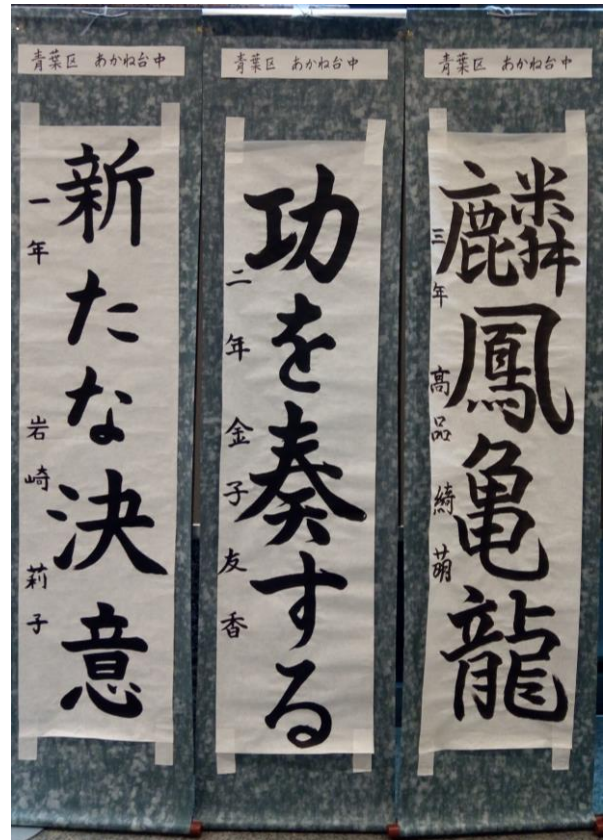 青葉区 あかね台中
麟鳳亀龍
三年 高品 綺萌
青葉区 あかね台中
功を奏する
二年 金子友香
青葉区 あかね台中
新たな決意
一年 岩崎 莉子